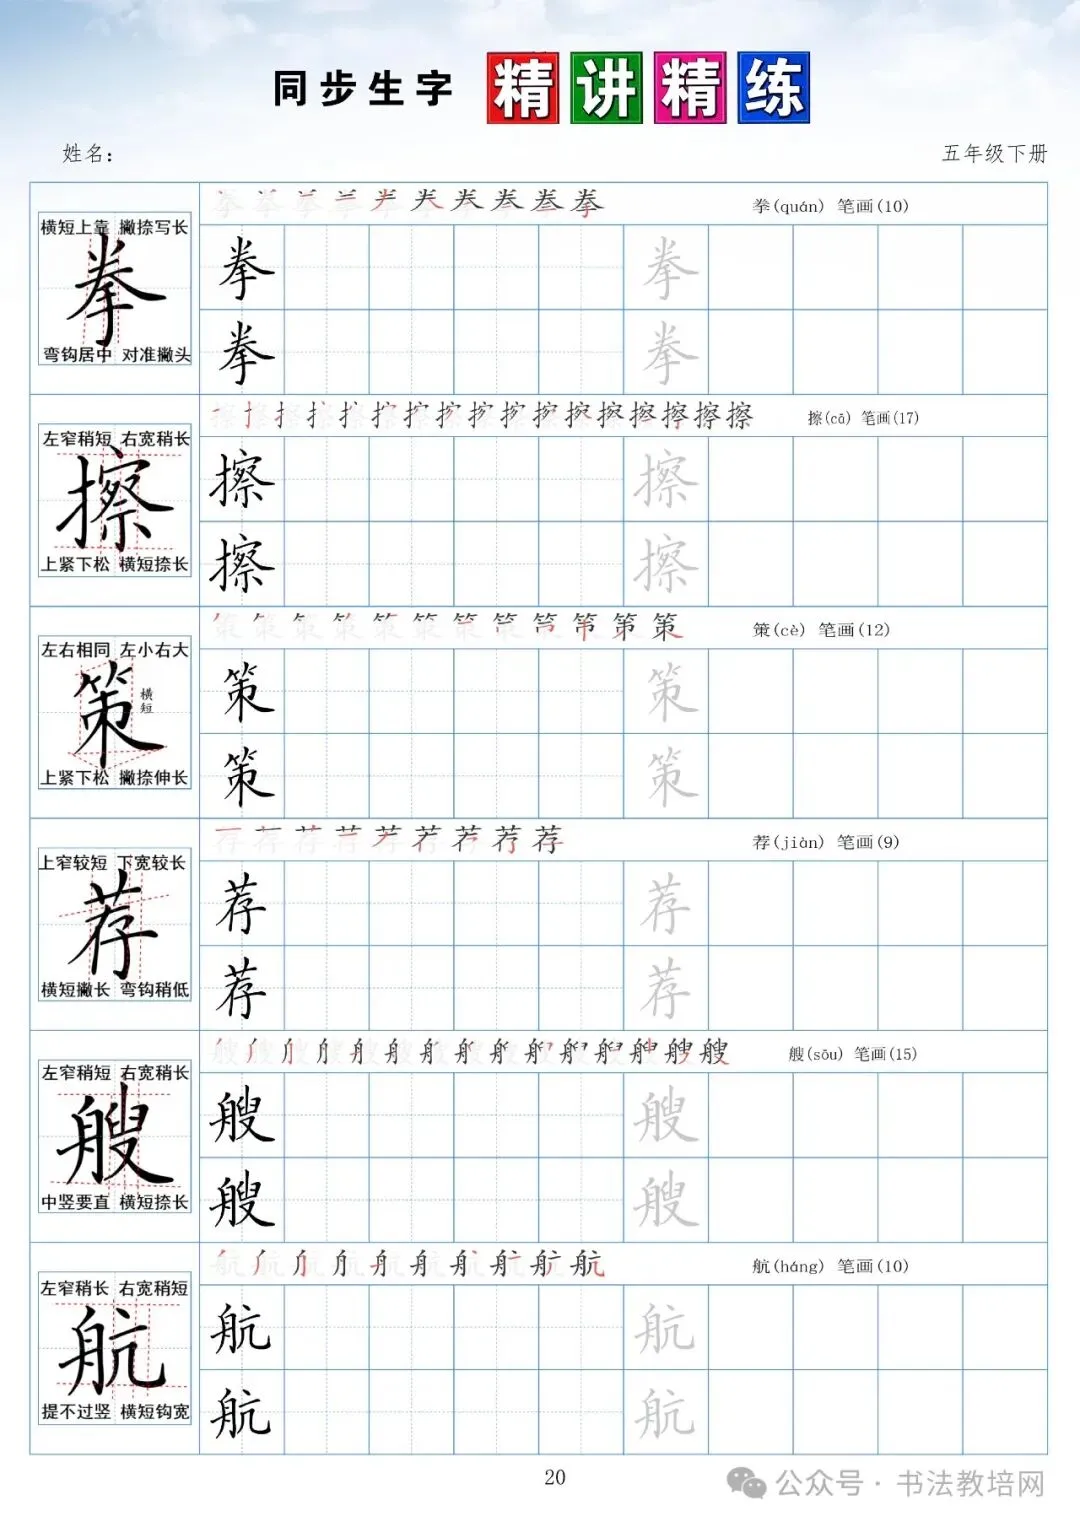 同步生字 精讲精练
姓名：
五年级下册
拳(quán) 笔画(10)
横短上靠 撇捺写长
拳
弯钩居中 对准撇头
拳 拳
拳 拳
擦(cā) 笔画(17)
左窄稍短 右宽稍长
擦
上紧下松 横短捺长
擦 擦
擦 擦
策(cè) 笔画(12)
左右相同 左小右大
策
横短
上紧下松 撇捺伸长
策 策
策 策
荐(jiàn) 笔画(9)
上窄较短 下宽较长
荐
横短撇长 弯钩稍低
荐 荐
荐 荐
艘(sōu) 笔画(15)
左窄稍短 右宽稍长
艘
中竖要直 横短捺长
艘 艘
艘 艘
航(háng) 笔画(10)
左窄稍长 右宽稍短
航
提不过竖 横短钩宽
航 航
航 航
20
公众号·书法教培网